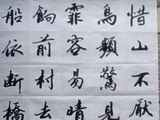 惜山不厭
鳥類驚見
霏容易晴
餉前村去
船依斷橋